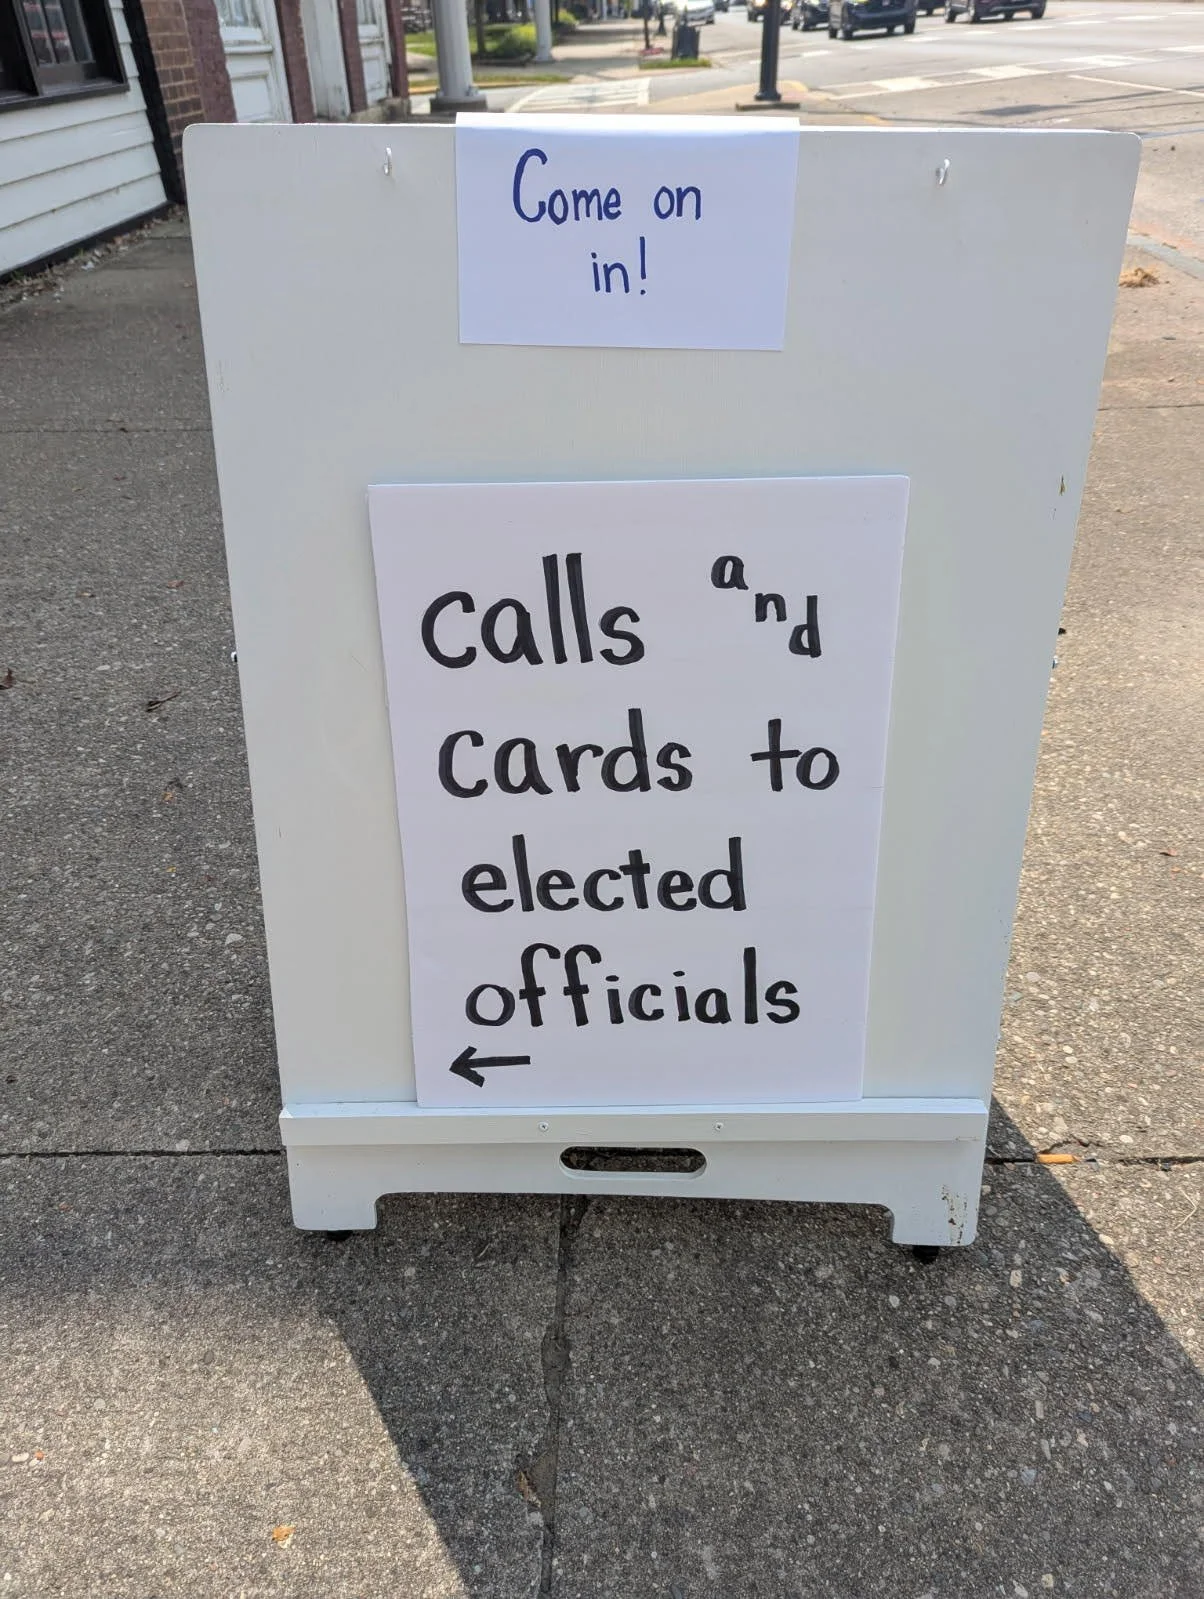 Come on
in!
calls and
cards to
elected
officials
←